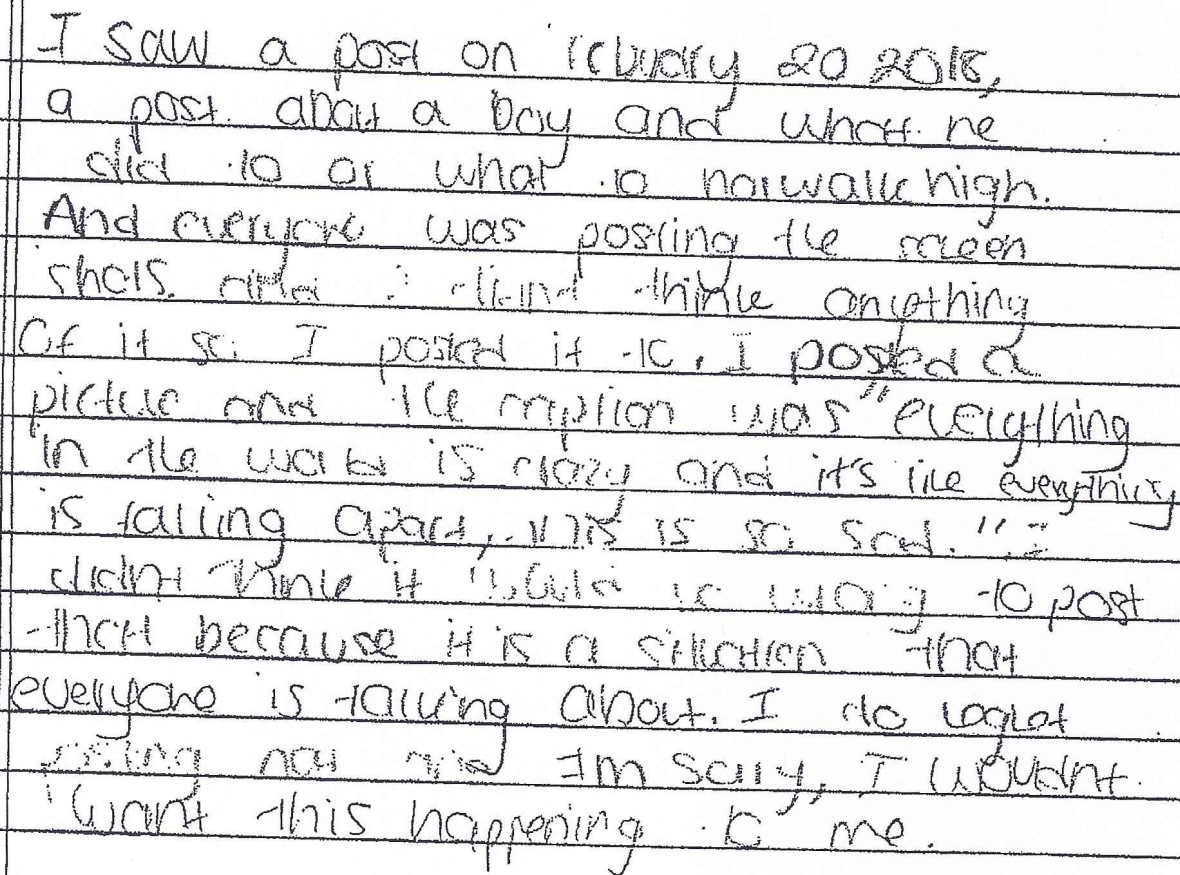 I saw a post on Febuary 20 2018,
a post about a boy and what he
did to or what to norwalk high.
And everyone was posting the screen
shots and I didnt think anything
Of it so I posted it to. I posted a
picture and the caption was "everything
in the world is crazy and it's like everything
is falling apart, this is so sad." I
didnt think it would be wrong to post
that because it is a situation that
everyone is talking about. I do regret
posting now and Im sorry, I wouldnt
want this happening to me.